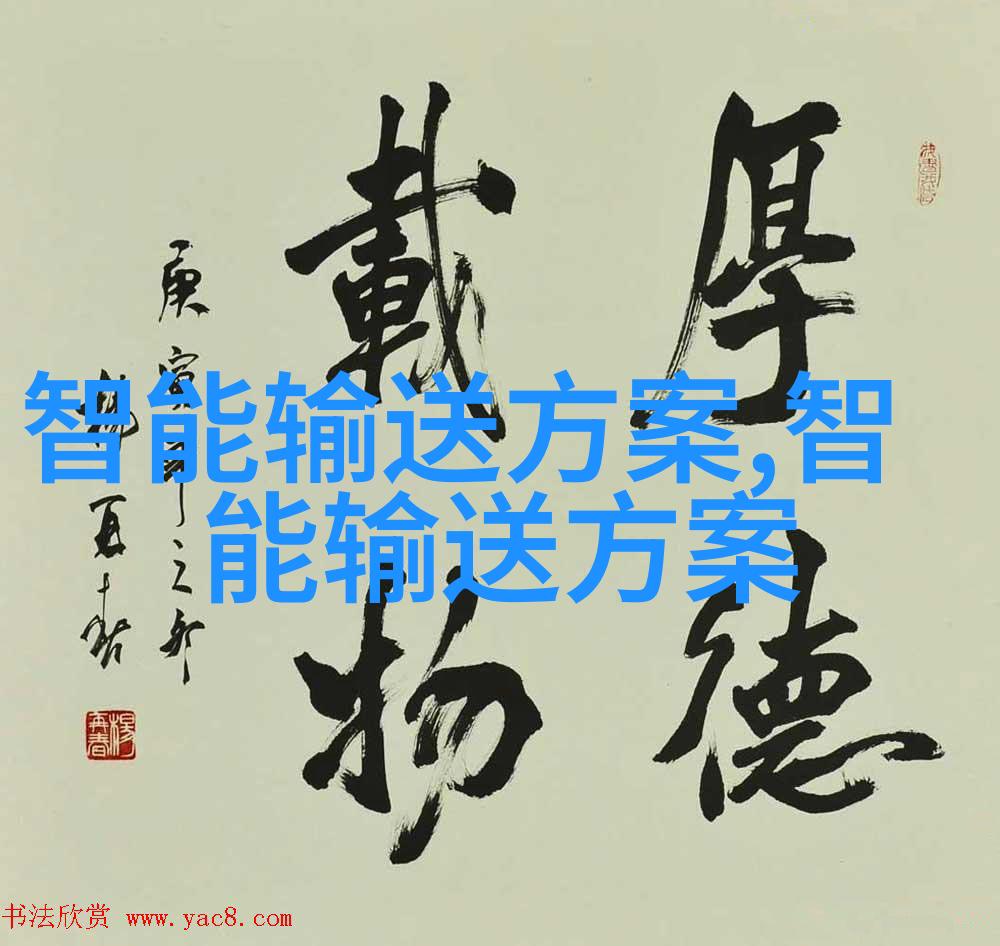 厚德
載物
庚寅年之
楊再春
楊再春
智能输送方案,智
能输送方案
书法欣赏 www.yac8.com